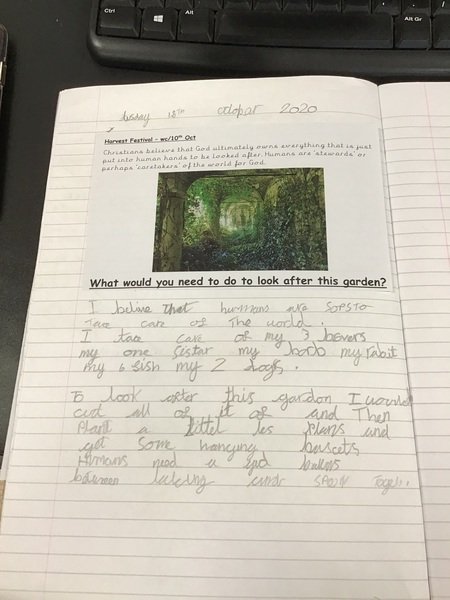 Ctrl
Alt
Alt Gr
Ctrl
15TH octopar 2020
Harvest Festival - wc/10th Oct
Christians believe that God ultimately owns everything that is just
put into human hands to be looked after. Humans are 'stewards' or
perhaps 'caretakers' of the world for God.
What would you need to do to look after this garden?
I belive That hurmans are SOPSTO
Tace care of The world.
I tace care of my 3
my one Sistar my my rabit
my 6 fish my 2 dogs.
To look after this gardon I would
cut all of it of and Then
Plant a littel les plans and
get some hanging bascets
Humans need a
between and